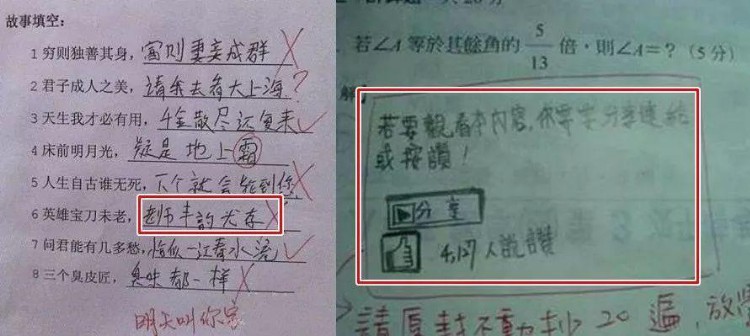 故事填空：
1 穷则独善其身，富则妻妾成群
2 君子成人之美，请东去看大上海？
3 天生我才必有用，千金散尽还复来
4 床前明月光，疑是地上霜
5 人生自古谁无死，下个就会轮到您
6 英雄宝刀未老，
7 问君能有几多愁，恰似一江春水流
8 三个臭皮匠，臭味都一样
明天叫你家
若∠A 等於其餘角的 5/13 倍，則∠A=？(5分)
解
若要觀看本內容，你需要分享連結
或按讚！
分享
4,127人說讚
請原封不動抄20遍，放學